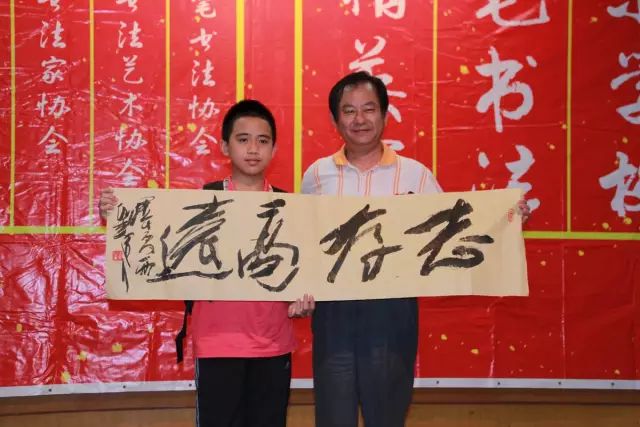 学校
书法
精英
书法协会
书法艺术协会
书法家协会
志存高遠